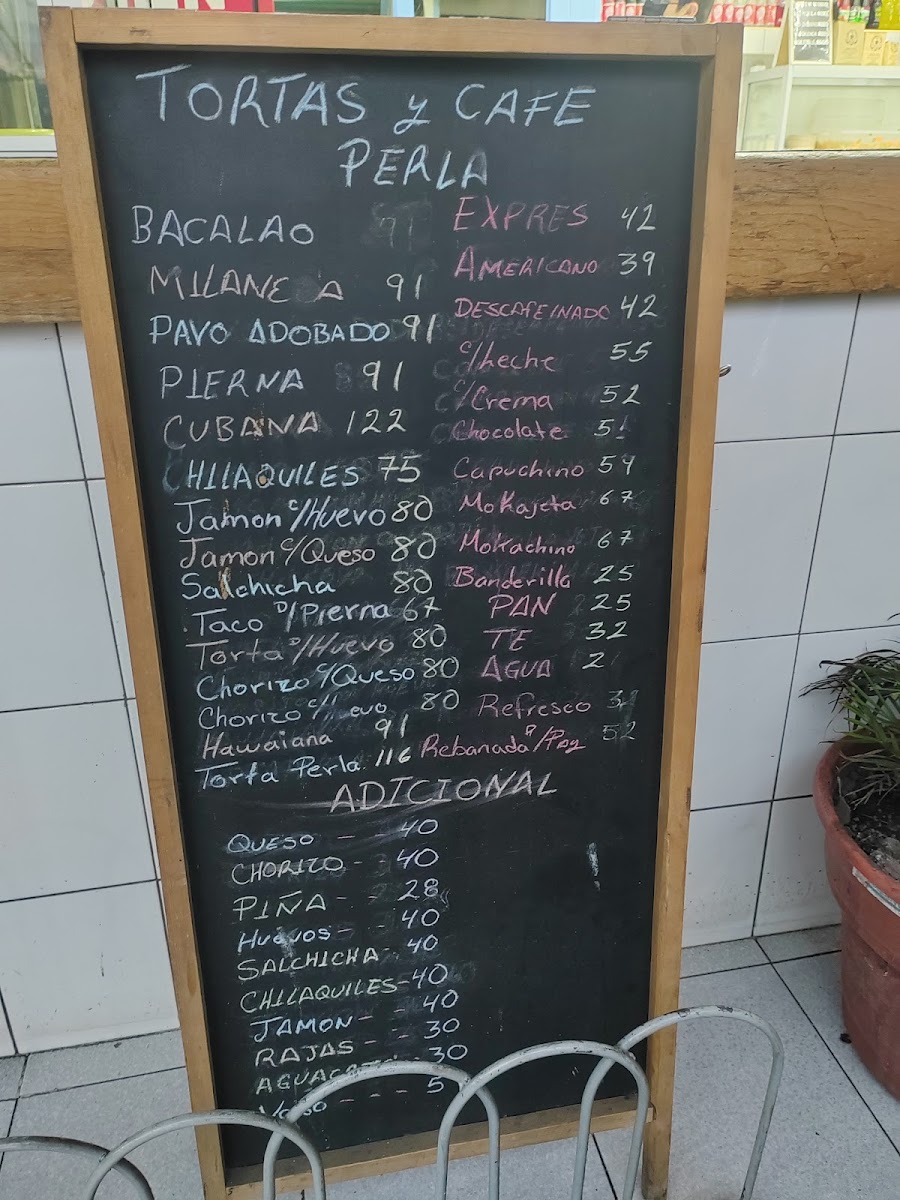 TORTAS y CAFE
PERLA
BACALAO
MILANE A 91
PAVO ADOBADO 91
PIERNA 91
CUBANA 122
CHILAQUILES 75
Jamon c/Huevo 80
Jamon c/Queso 80
Salchicha 80
Taco D/Pierna 67
Torta D/Huevo 80
Chorizo c/Queso 80
Chorizo 80
Hawaiana 91
Torta Perla 116
EXPRES 42
AMERICANO 39
DESCAFEINADO 42
c/Leche 55
c/Crema 52
Chocolate
Capuchino
Mokajeta 67
Mokachino 67
Banderilla 25
PAN 25
TE 32
AGUA
Refresco
Rebanada 52
ADICIONAL
QUESO - 40
CHORIZO - 40
PIÑA - 28
Huevos - 40
SALCHICHA - 40
CHILAQUILES - 40
JAMON - - 40
RAJAS - - 30
30
- - - 5